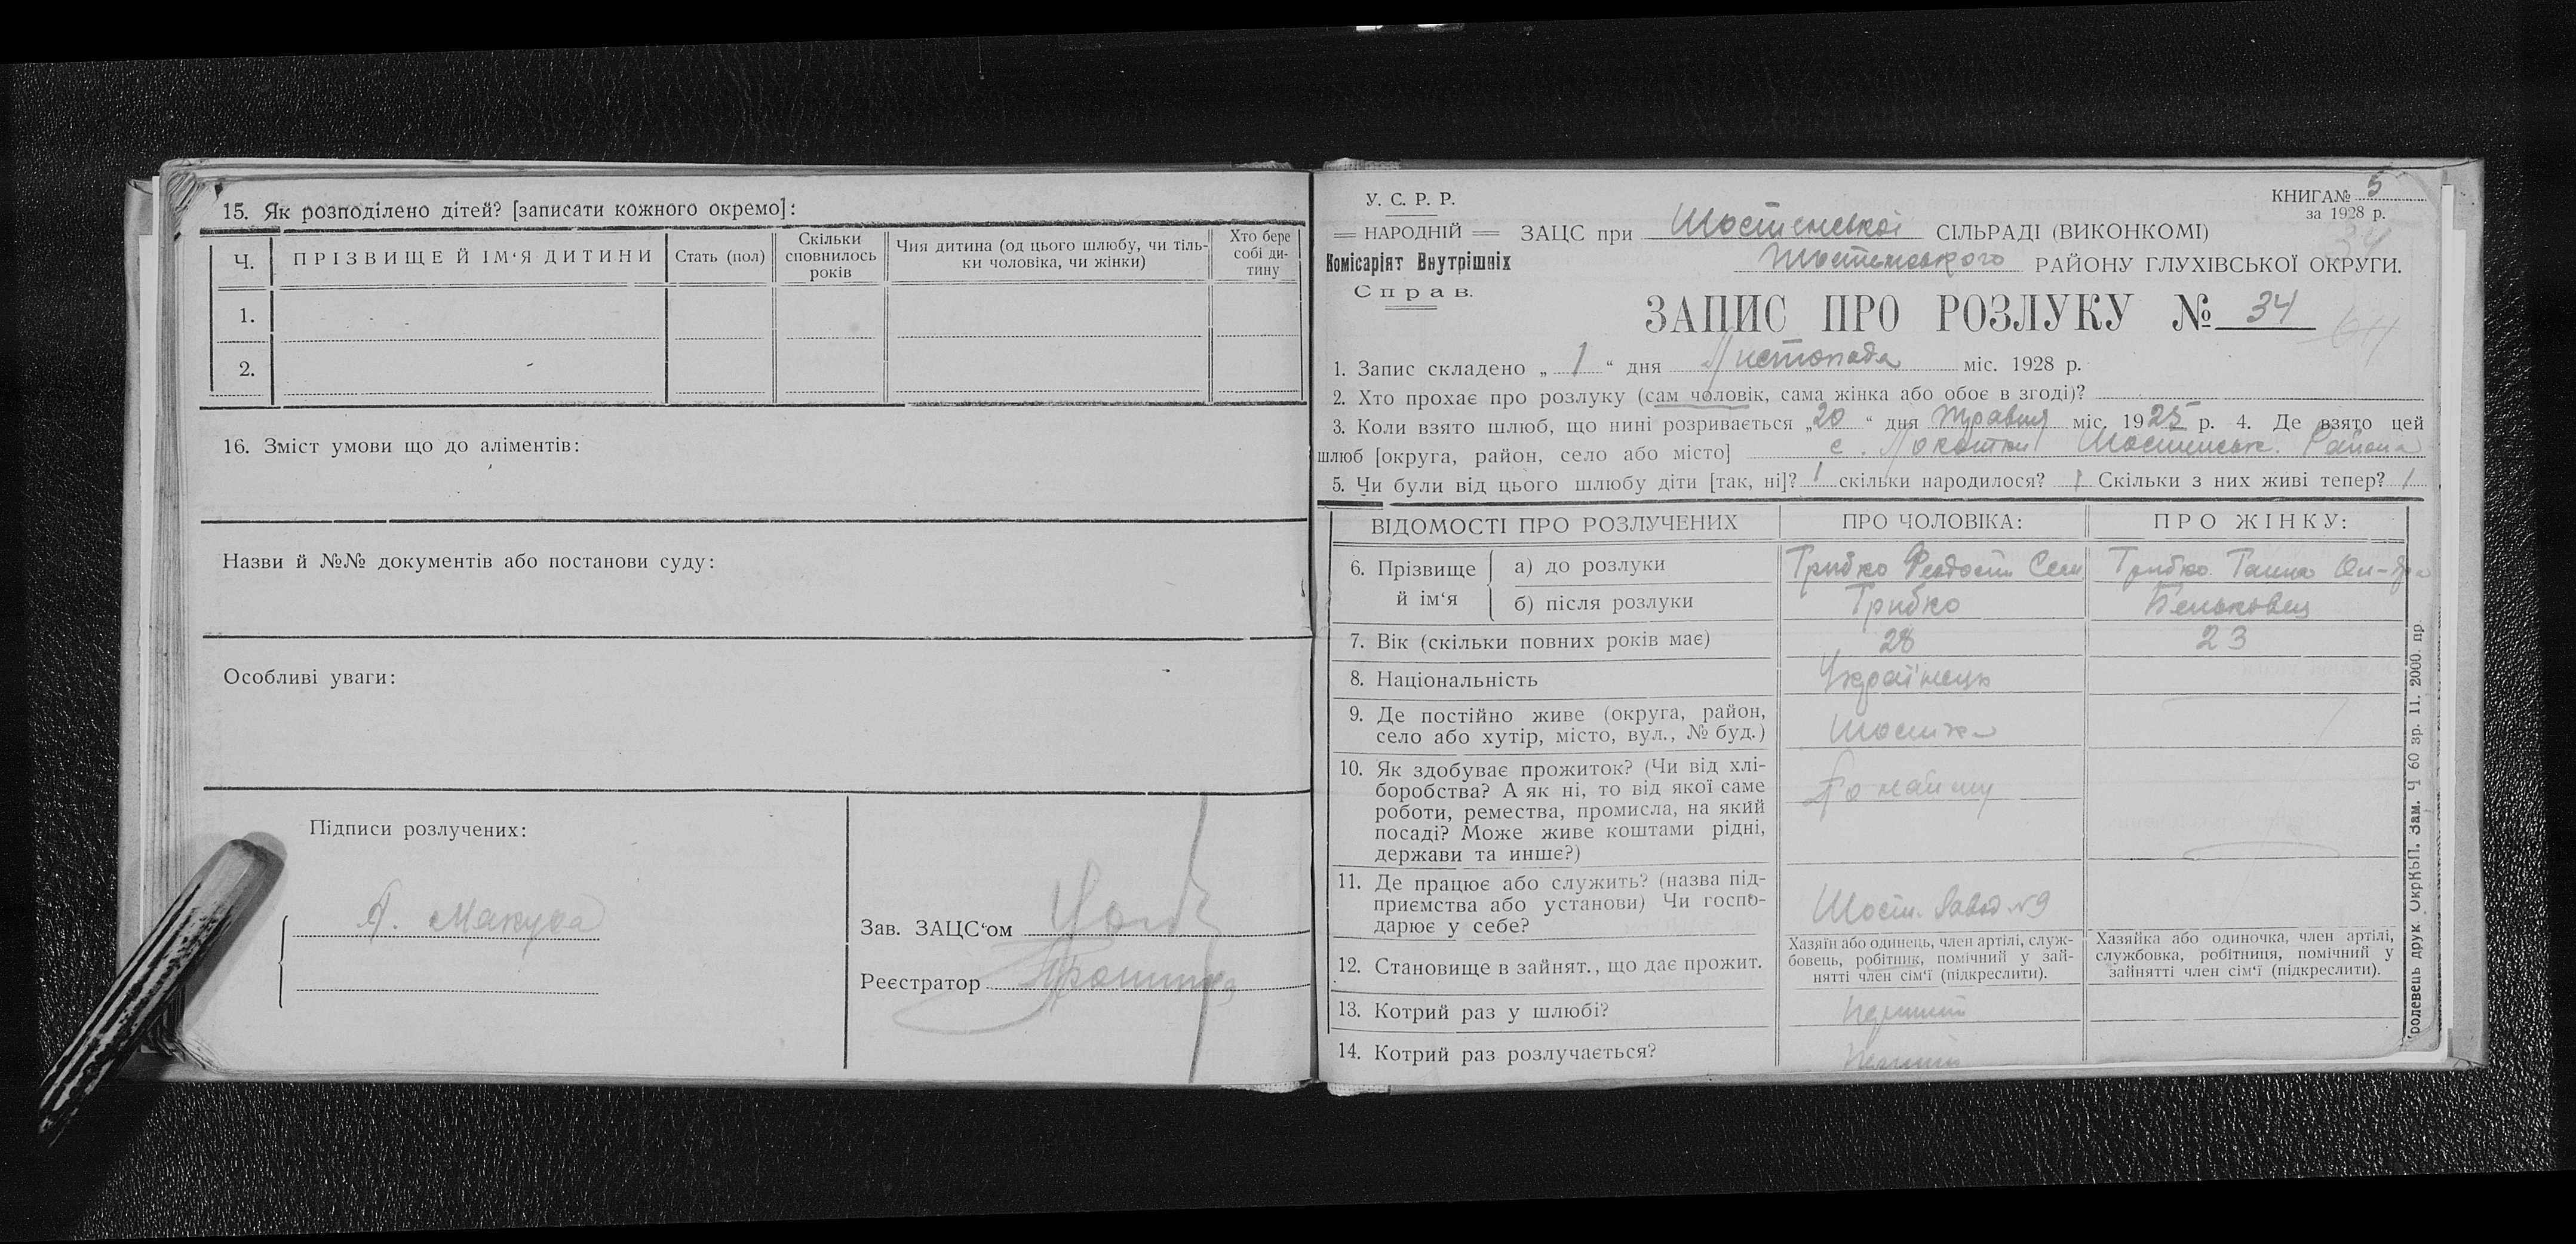 15. Як розподілено дітей? [записати кожного окремо]:
Ч. ПРІЗВИЩЕ Й ІМ‘Я ДИТИНИ Стать (пол) Скільки сповнилось років Чия дитина (од цього шлюбу, чи тільки чоловіка, чи жінки) Хто бере собі дитину
1.
2.
16. Зміст умови що до аліментів:
Назви й №№ документів або постанови суду:
Особливі уваги:
Підписи розлучених:
Зав. ЗАЦС‘ом
Реєстратор
У. С. Р. Р.
НАРОДНІЙ
Комісаріят Внутрішніх
Справ.
КНИГА № 5
за 1928 р.
34
ЗАЦС при Шостенської СІЛЬРАДІ (ВИКОНКОМІ)
Шостенського РАЙОНУ ГЛУХІВСЬКОЇ ОКРУГИ.
ЗАПИС ПРО РОЗЛУКУ № 34
1. Запис складено „ 1 “ дня Листопада міс. 1928 р.
2. Хто прохає про розлуку (сам чоловік, сама жінка або обоє в згоді)?
3. Коли взято шлюб, що нині розривається „20 “ дня Травня міс. 1925 р. 4. Де взято цей
шлюб [округа, район, село або місто] с. Локотки Шостенськ. Района
5. Чи були від цього шлюбу діти [так, ні]? 1 скільки народилося? 1 Скільки з них живі тепер? 1
ВІДОМОСТІ ПРО РОЗЛУЧЕНИХ ПРО ЧОЛОВІКА: ПРО ЖІНКУ:
6. Прізвище й ім‘я а) до розлуки Грибко Феодосій Сем Грибко Ганна
б) після розлуки Грибко Беньковец
7. Вік (скільки повних років має) 28 23
8. Національність Українець
9. Де постійно живе (округа, район,
село або хутір, місто, вул., № буд.) Шостка
10. Як здобуває прожиток? (Чи від хлі-
боробства? А як ні, то від якої саме
роботи, ремества, промисла, на який
посаді? Може живе коштами рідні,
держави та инше?)
По найму
11. Де працює або служить? (назва під-
приємства або установи) Чи госпо-
дарює у себе?
Шост. Завод №9
12. Становище в зайнят., що дає прожит.
Хазяїн або одинець, член артілі, служ-
бовець, робітник, помічний у зай-
нятті член сім‘ї (підкреслити).
Хазяйка або одиночка, член артілі,
службовка, робітниця, помічний у
зайнятті член сім‘ї (підкреслити).
13. Котрий раз у шлюбі? Перший
14. Котрий раз розлучається? Перший
ролевець друк. ОкрКЬП. Зам. Ч 60 зр. 11. 2000. пр.